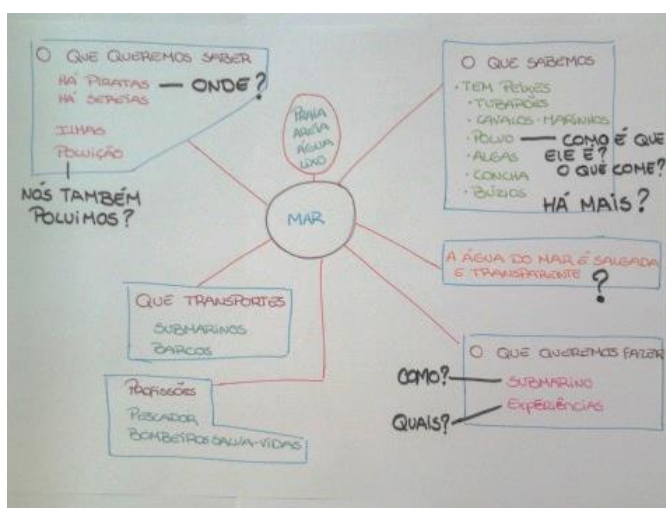 O QUE QUEREMOS SABER
HÁ PIRATAS — ONDE?
HÁ SEREIAS
ILHAS
POLUIÇÃO
NÓS TAMBÉM
POLUIMOS?
PRAIA
AREIA
ÁGUA
LIXO
MAR
O QUE SABEMOS
· TEM PEIXES
· TUBARÕES
· CAVALOS-MARINHOS
· POLVO — COMO É QUE
ELE É?
· ALGAS
O QUE COME?
· CONCHA
· BÚZIOS
HÁ MAIS?
A ÁGUA DO MAR É SALGADA
E TRANSPARENTE ?
QUE TRANSPORTES
SUBMARINOS
BARCOS
PROFISSÕES
PESCADOR
BOMBEIROS SALVA-VIDAS
O QUE QUEREMOS FAZER
COMO? — SUBMARINO
QUAIS? — EXPERIÊNCIAS